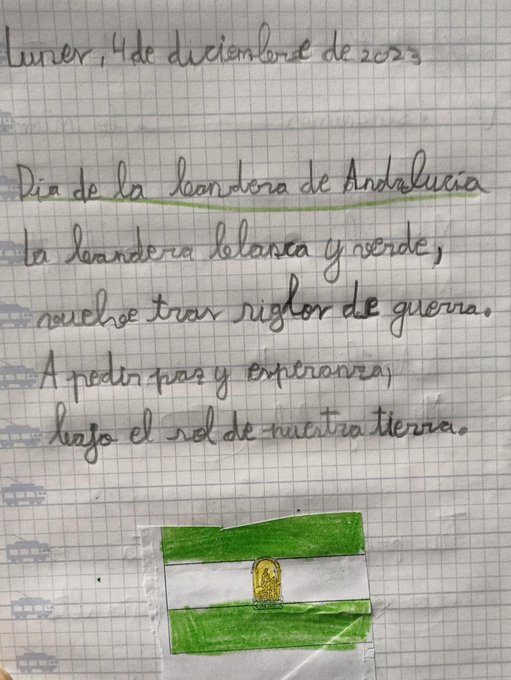 Lunes, 4 de diciembre de 2023
Día de la bandera de Andalucía
La bandera blanca y verde,
vuelve tras siglos de guerra.
A pedir paz y esperanza,
bajo el sol de nuestra tierra.